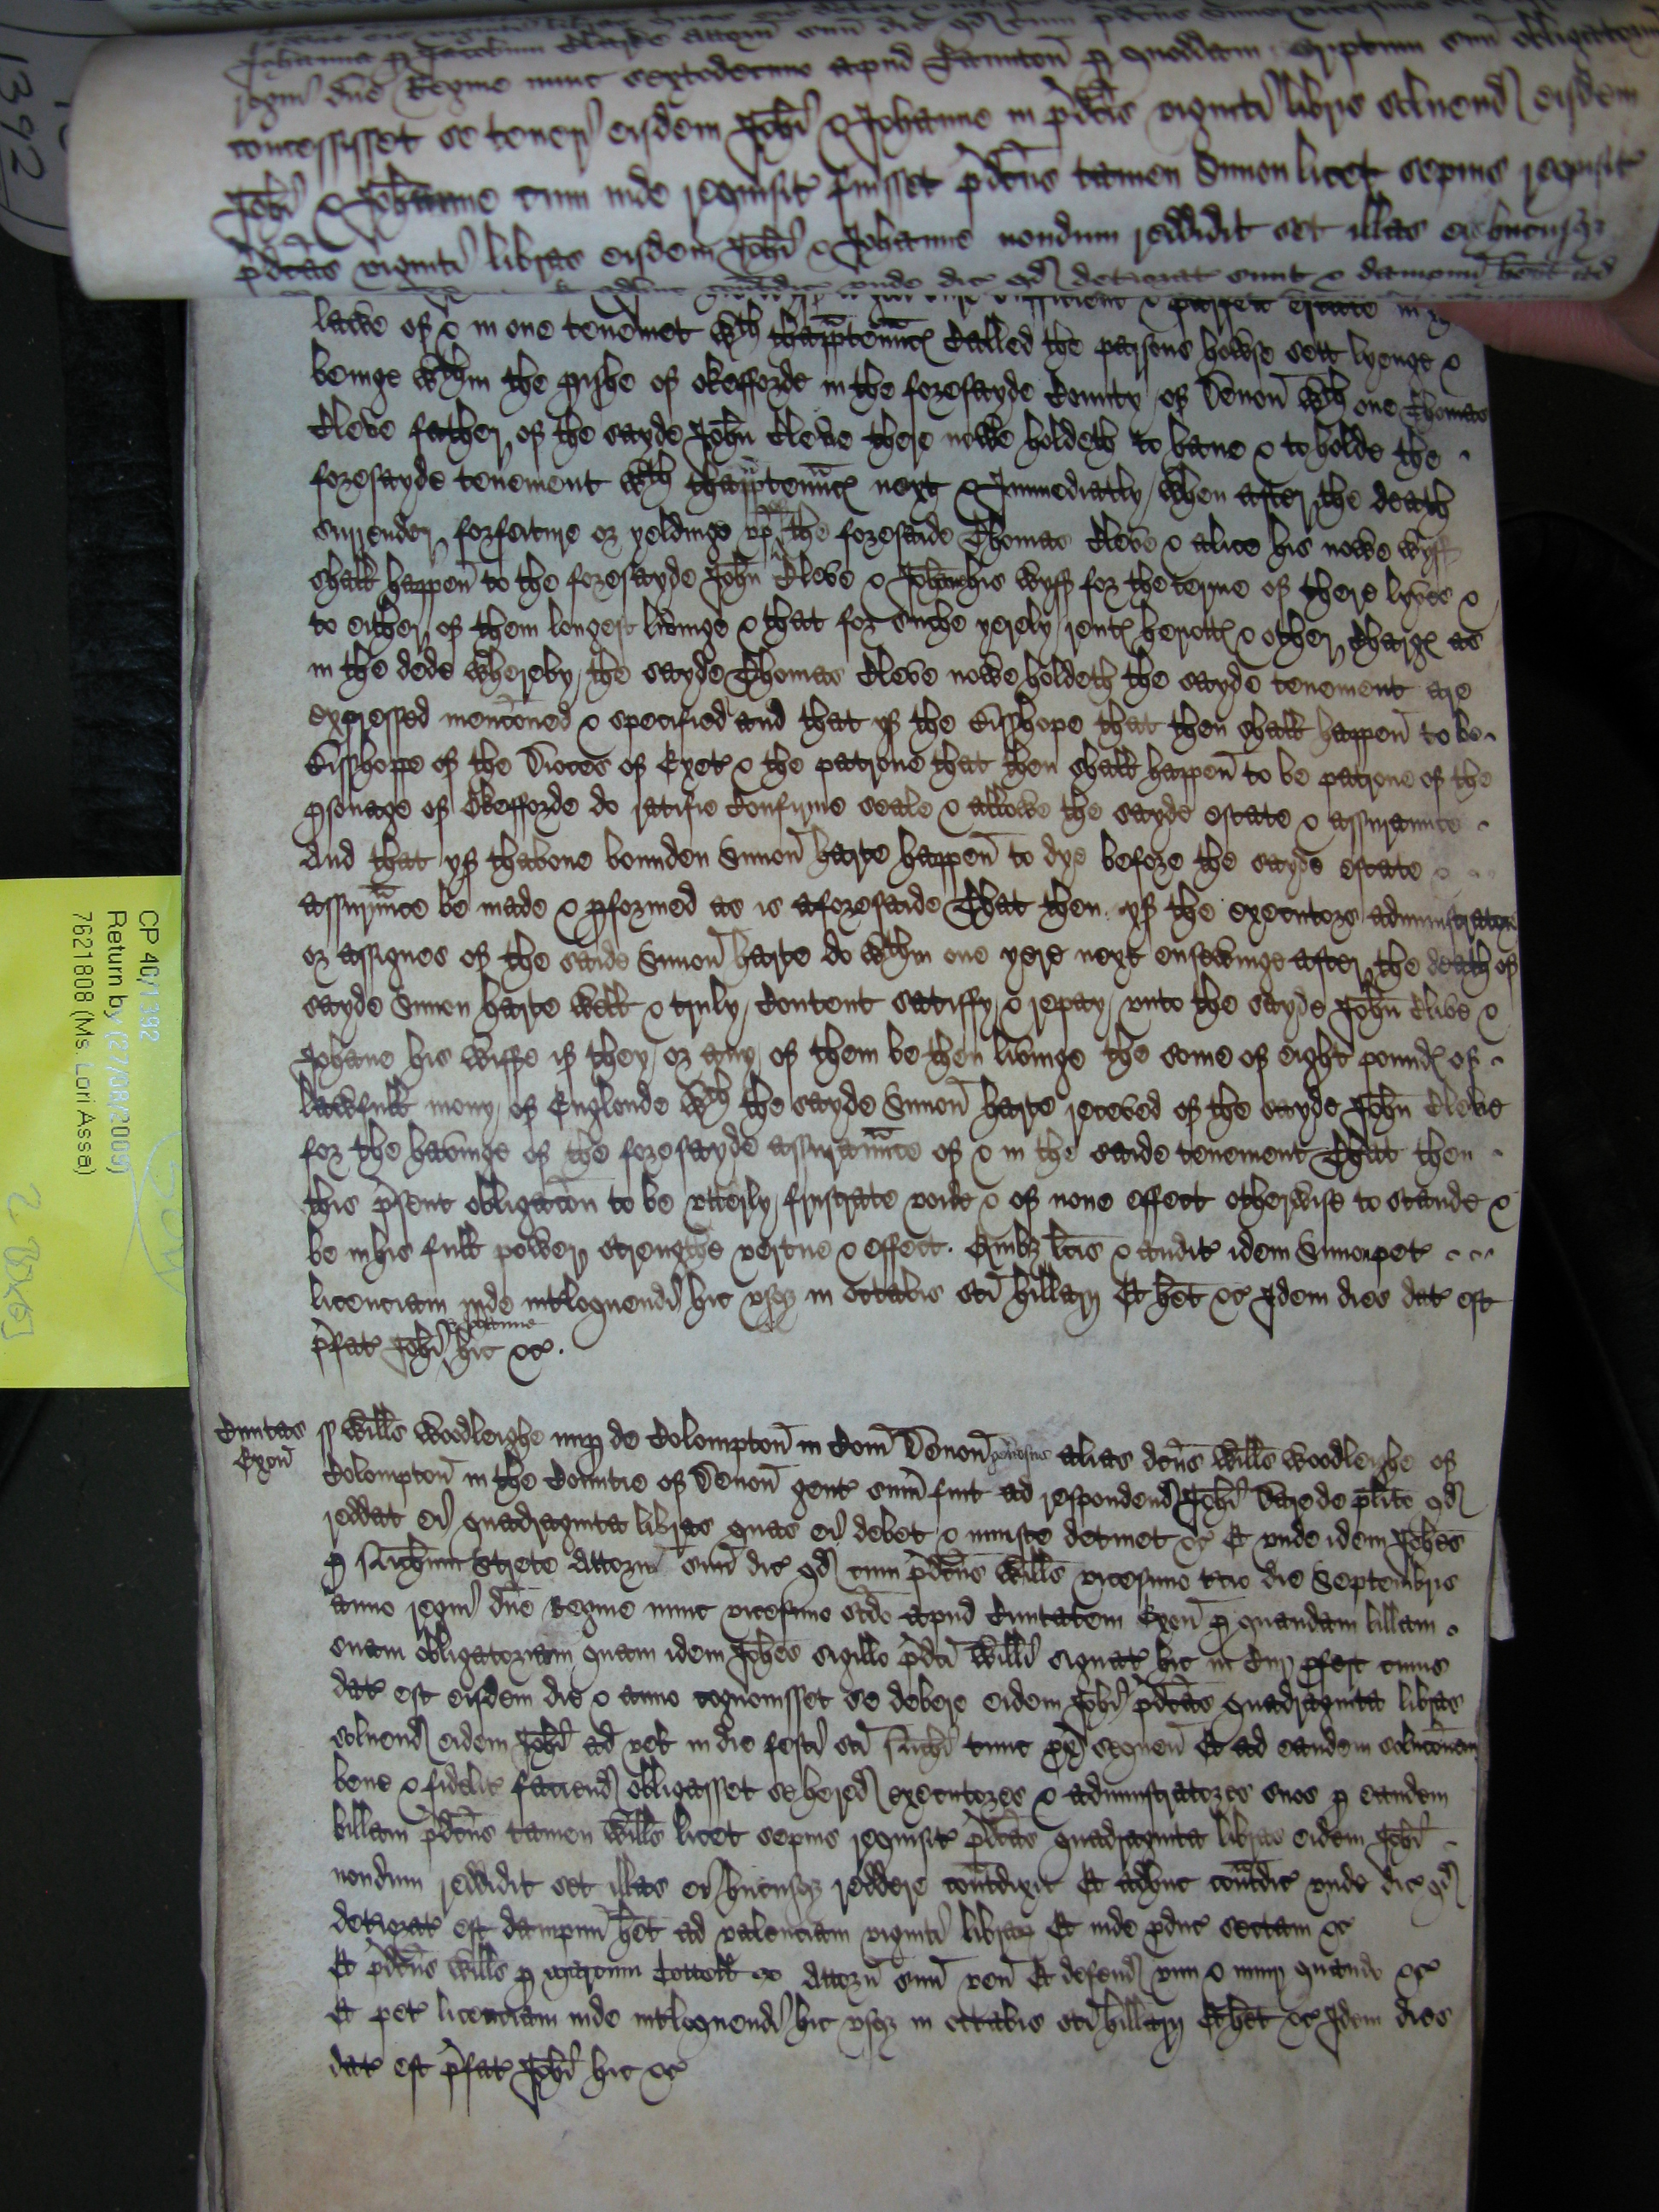 Johanna p Jacobum Clarke Attorn suu dic qd cum pdcus Simon
regni dne Regine nunc sextodecimo apud Taunton p quoddam scriptum suu obligatoriu
concessisset se teneri eisdem Johi & Johanne in pdcis viginti libris solvend eisdem
Johi & Johanne cum inde requisit fuisset pdcus tamen Simon licet sepius requisit
pdcas viginti libras eisdem Johi & Johanne nondum reddidit set illas eis hucusq
unde dic qd deteriorat sunt & dampnu hent ad
sufficient & parfett estate in
lawe of & in one tenemet wth thapptennc Called the parsons howse sett lyenge &
beinge wthin the pishe of Okefforde in the foresayde County of Devon wth one Thomas
Cleve father of the sayde John Cleve there nowe holdeth to have & to holde the
foresayde tenement wth thapptennc next & Immediatly when after the death
surrender forfeiture or yeldinge vp the foresaide Thomas Cleve & alice his nowe wyff
shall happen to the foresayde John Cleve & Johan his wyff for the terme of there lyves &
to either of them longest livinge & that for suche yerely rentf heriottf & other Chargf as
in the dede whereby the sayde Thomas Cleve nowe holdeth the sayde tenement are
expressed mencioned & specified and that yf the Bisshope that then shall happen to be
Bisshoppe of the Dioces of Exet & the patrone that then shall happen to be patrone of the
psonage of Okefforde do ratifie Confirme seale & allowe the sayde estate & assurannce
And that yf thabove bounden Simon harte happen to dye before the sayde estate &
assurannce be made & pformed as is aforesaide That then yf the executors administrators
or assignes of the saide Simon harte do wthin one yere next ensewinge after the death of
sayde Simon harte well & truly Content satisffy & repay unto the sayde John Clive &
Johane his wiffe if they or any of them be then livinge the some of eight poundf of
lawfull mony of Englonde wth the sayde Simon harte receved of the sayde John Cleve
for the havinge of the foresayde assurannce of & in the saide tenement That then
this psent obligacon to be utterly frustrate voide & of none effect otherwise to stande &
be in his full power strengthe vertue & effect. Quibz lcis & audit idem Simon pet
licenciam inde intloquendi hic usqz in octabis sci hillarij Et het &c Idem dies dat est
pfat Johi & Johanne hic &c.
Civitas Exon
ss Wills Woodleighe nup de Colompton in Com Devon generosus alias dcus Wills Woodleighe of
Colompton in the Countie of Devon gent sum fuit ad respondend Johi Dare de plito qd
reddat ei quadraginta libras quas ei debet & iniuste detinet &c Et unde idem Johes
p Richum Strete Attorn suu dic qd cum pdcus Wills vicesimo tcio die Septembris
anno regni dne Regine nunc vicesimo scdo apud Civitatem Exon p quandam billam
suam obligatoriam quam idem Johes sigillo pdci Willi signat hic in Cur pfert cuius
dat est eisdem die & anno cognovisset se debere eidem Johi pdcas quadraginta libras
solvend eidem Johi ad vel in die festi sci Michi tunc px sequen Et ad eandem solucionem
bene & fidelit faciend obligasset se hered executores & administratores suos p eandem
billam pdcus tamen Wills licet sepius requisit pdcas quadraginta libras eidem Johi
nondum reddidit set illas ei hucusqz reddere contradixit Et adhuc contradic unde dic qd
deteriorat est dampnu het ad valenciam viginti librar Et inde pduc sectam &c
Et pdcus Wills p Marcum Cottell Attorn suu ven Et defend vim & iniur quando &c
Et pet licenciam inde intloquendi hic usqz in octabis sci hillarij Et het &c Idem dies
dat est pfat Johi hic &c
CP 40/1392
Return by (27/08/2009)
7621808 (Ms. Lori Assa)
1392